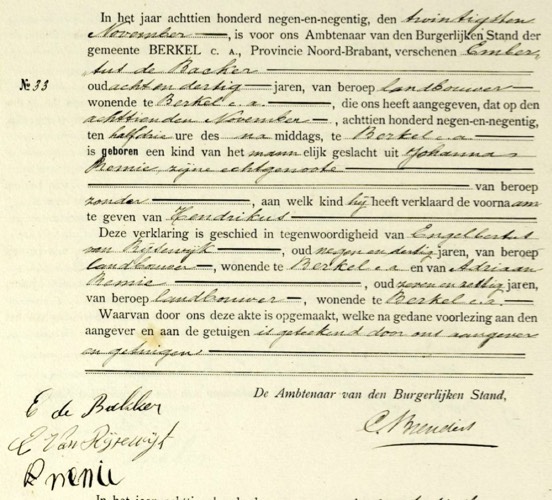 In het jaar achttien honderd negen-en-negentig, den twintigsten
November —, is voor ons Ambtenaar van den Burgerlijken Stand der
gemeente BERKEL C. A., Provincie Noord-Brabant, verschenen Ember-
tus de Backer
№ 33
oud acht en dertig — jaren, van beroep landbouwer —
wonende te Berkel c.a. —, die ons heeft aangegeven, dat op den
achttienden November —, achttien honderd negen-en-negentig,
ten half drie ure des na middags, te Berkel c.a. —
is geboren een kind van het mannelijk geslacht uit Johanna
Premie, zijne echtgenoote
van beroep
zonder —, aan welk kind hij heeft verklaard de voornaam
te geven van Hendrikus
Deze verklaring is geschied in tegenwoordigheid van Engelbertus
van Rijsewijk —, oud negen en dertig jaren, van beroep
landbouwer —, wonende te Berkel c.a. en van Adriaan
Premie —, oud zeven en zestig jaren,
van beroep landbouwer —, wonende te Berkel c.a. —.
Waarvan door ons deze akte is opgemaakt, welke na gedane voorlezing aan den
aangever en aan de getuigen is geteekend door ons aangever
en getuigens
De Ambtenaar van den Burgerlijken Stand,
E de Bakker
E Van Rijsewijk